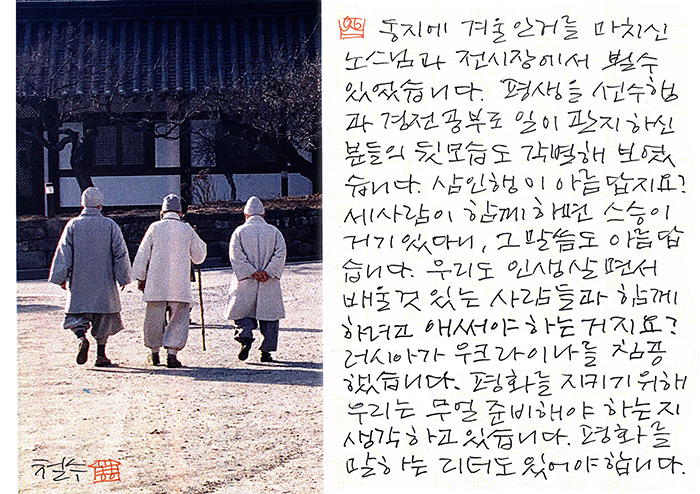 동지에 겨울안거를 마치신
노스님과 전시장에서 뵐수
있었습니다. 평생을 선수행
과 경전공부로 일이관지하신
분들의 뒷모습도 각별해 보였
습니다. 삼인행이 아름답지요?
세사람이 함께하면 스승이
거기있다니, 그 말씀도 아름답
습니다. 우리도 인생살면서
배울것 있는 사람들과 함께
하려고 애써야 하는거지요?
러시아가 우크라이나를 침공
했습니다. 평화를 지키기 위해
우리는 무얼 준비해야 하는지
생각하고있습니다. 평화를
말하는 리더도 있어야합니다.
철수